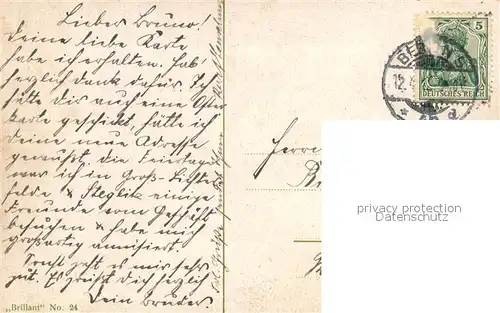 Lieber Bruno!
Deine liebe Karte
habe ich erhalten. Hab'
herzlich dank dafür. Ich
hätte dir auch eine Oster
karte geschickt, hätte ich
deine neue Adresse
gewußt. die Feiertage
war ich in Groß-Lichter
felde & Steglitz einige
Freunde vom Geschäft
besuchen & habe mich
großartig amüsiert.
Sonst geht es mir sehr
gut. Es grüßt dich herzlich
Dein Bruder.
"Brillant" No. 24
BERLIN S
12.
5
DEUTSCHES REICH
Herrn
privacy protection
Datenschutz